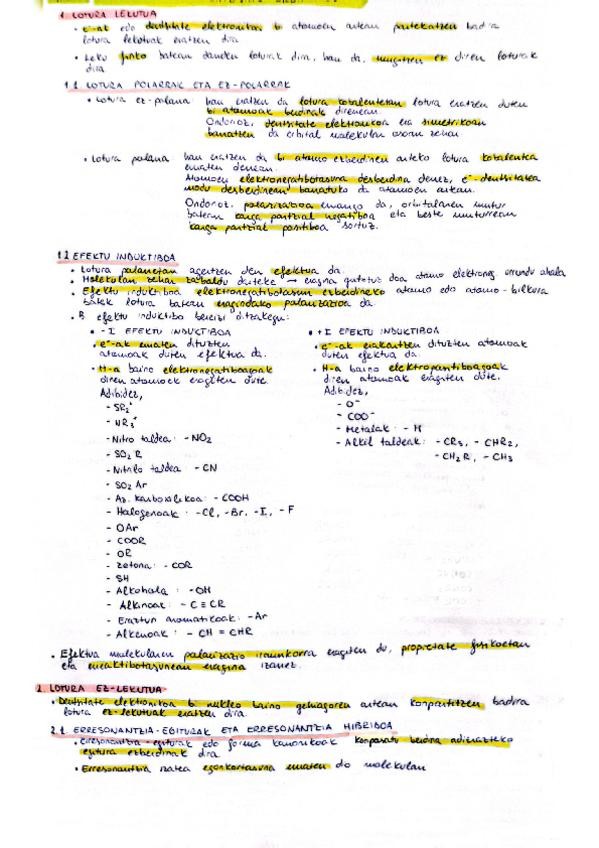 1. LOTURA LEKUTUA
• e⁻-ak edo dentsitate elektronikoa bi atomoen artean partekatzen badira
lotura lekutuak eratzen dira.
• Leku finko batean dauden loturak dira, hau da, mugitzen ez diren loturak
dira.
1.1. LOTURA POLARRAK ETA EZ-POLARRAK
• Lotura ez-polarra hau eratzen da lotura kobalentetan lotura eratzen duten
bi atomoak berdinak direnean.
Ondorioz, dentsitate elektronikoa era simetrikoan
banatzen da orbital molekular osoan zehar.
• Lotura polarra hau ematen da bi atomo ezberdinen arteko lotura kobalentea
ematen denean.
Atomoen elektronegatibotasuna desberdina denez, e⁻-dentsitatea
modu desberdinean banatuko da atomoen artean.
Ondorioz, polarizazioa emango da, orbitalaren mutur
batean karga partzial negatiboa eta beste muturrean
karga partzial positiboa sortuz.
1.2 EFEKTU INDUKTIBOA
• Lotura polarretan agertzen den efektua da.
• Molekulan zehar zabaldu daiteke → eragina gutxituz doa atomo elektroneg. urrundu ahala
• Efektu induktiboa elektronegatibotasun ezberdineko atomo edo atomo-bilkura
batek lotura batean eragindako polarizazioa da.
• Bi efektu induktibo bereizi ditzakegu:
• -I EFEKTU INDUKTIBOA
• e⁻-ak ematen dituzten
atomoak duten efektua da.
• H-a baino elektronegatiboagoak
diren atomoek eragiten dute.
Adibidez,
- SR₂⁺
- NR₃⁺
- Nitro taldea: -NO₂
- SO₂R
- Nitrilo taldea: -CN
- SO₂Ar
- Az. karboxilikoa: -COOH
- Halogenoak: -Cl, -Br, -I, -F
- OAr
- COOR
- OR
- Zetona: -COR
- SH
- Alkohola: -OH
- Alkinoak: -C≡CR
- Eraztun aromatikoak: -Ar
- Alkenoak: -CH=CHR
• +I EFEKTU INDUKTIBOA
• e⁻-ak erakartzen dituzten atomoak
duten efektua da.
• H-a baino elektropositiboagoak
diren atomoak eragiten dute.
Adibidez,
- O⁻
- COO⁻
- Metalak: -M
- Alkil taldeak: -CR₃, -CHR₂,
-CH₂R, -CH₃
• Efektua molekularen polarizazio iraunkorra eragiten du, propietate fisikoetan
eta erreaktibotasunean eragina izanez.
2. LOTURA EZ-LEKUTUA
• Dentsitate elektronikoa bi nukleo baino gehiagoren artean konpartitzen badira
lotura ez-lekutuak eratzen dira.
2.1. ERRESONANTZIA-EGITURAK ETA ERRESONANTZIA HIBRIDOA
• Erresonantzia-egiturak edo forma kanonikoak konposatu berdina adierazteko
egitura ezberdinak dira.
• Erresonantzia izatea egonkortasuna ematen dio molekulari